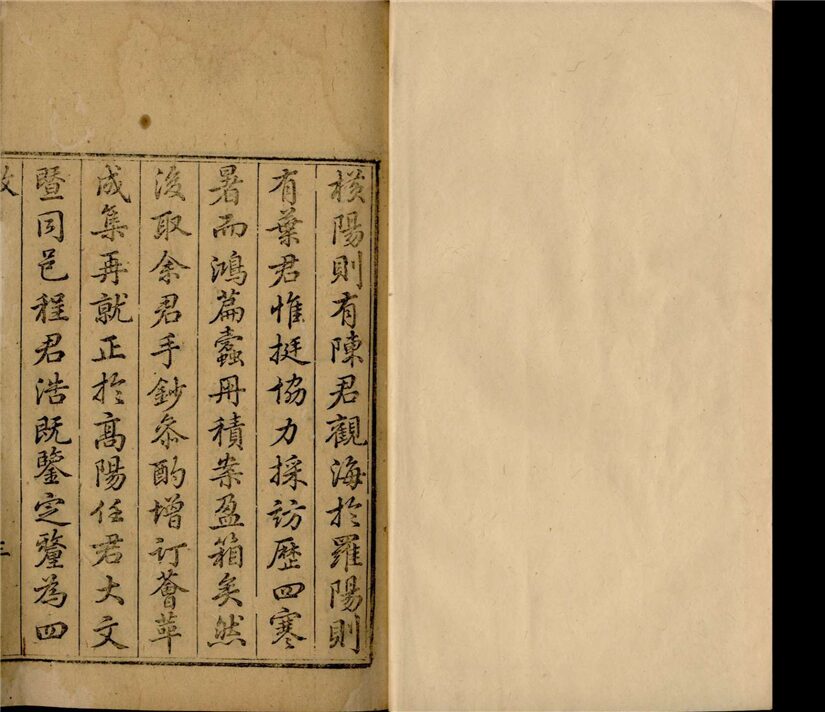 橫陽則有陳君觀海於羅陽則
有葉君惟挺協力採訪歷四寒
暑而鴻篇蠹冊積案盈箱矣然
後取余君手鈔叅酌增訂薈萃
成集再就正於高陽任君大文
暨同邑程君浩既鑒定釐為四